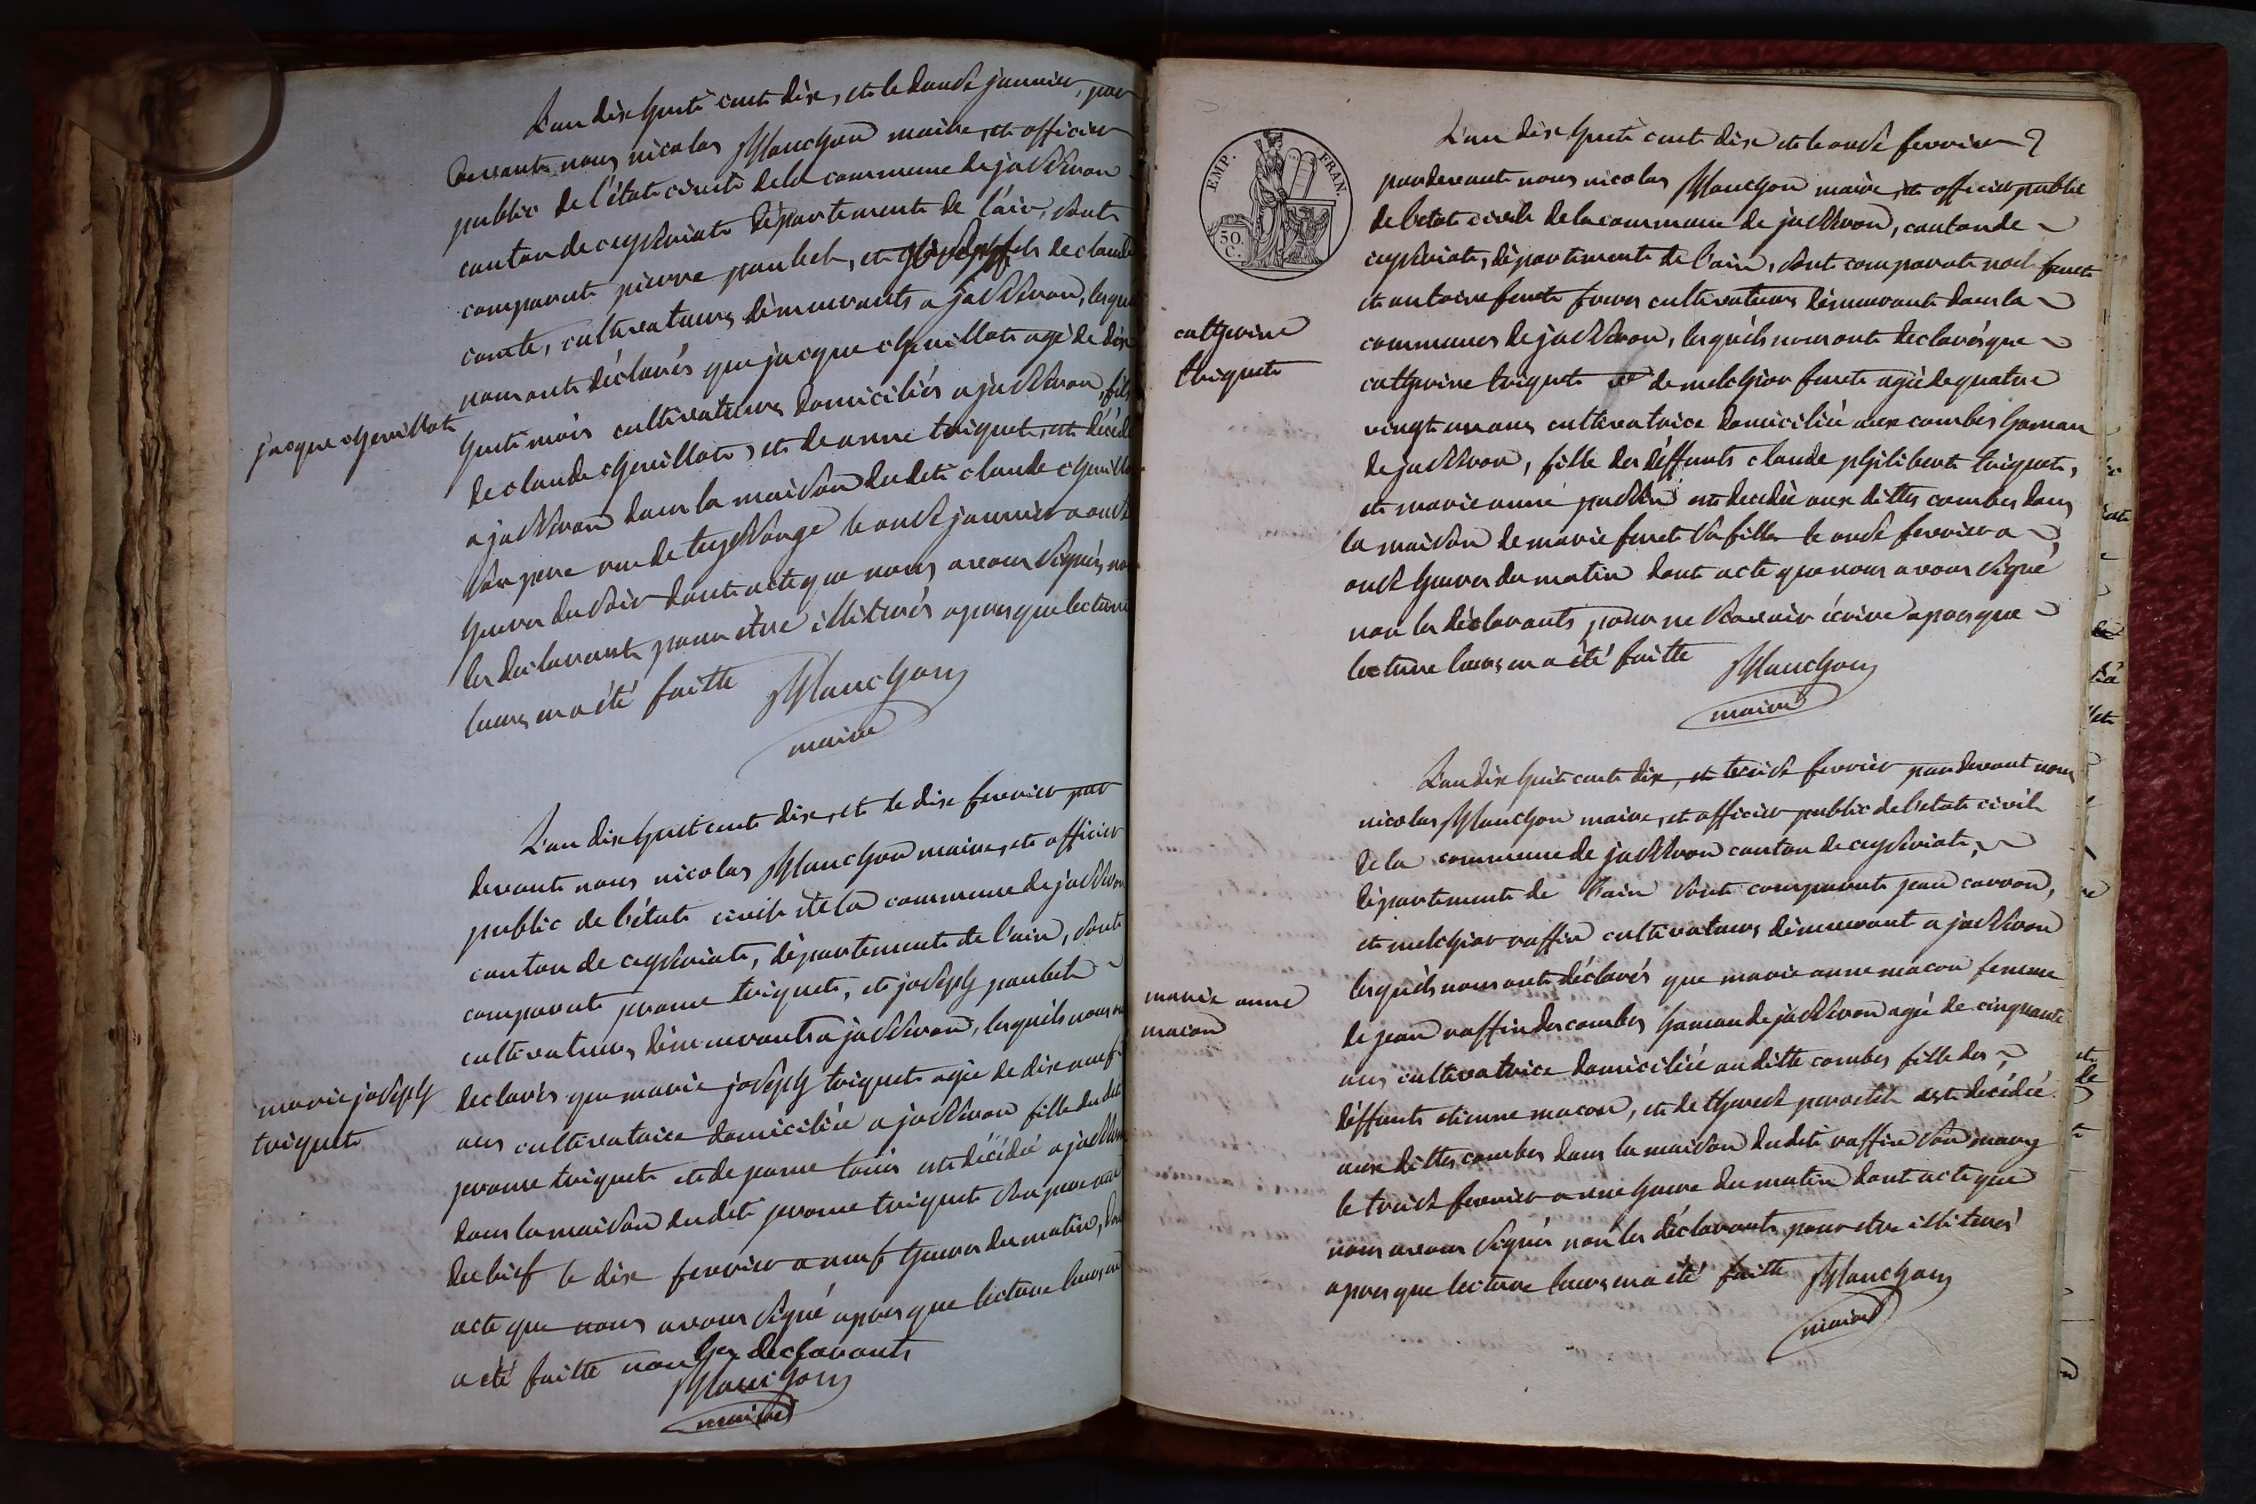 L'an dix huit cent dix, et le douze janvier, par
devant nous nicolas Manchon maire, et officier
public de l'état civile dela commune de jasseron
canton de ceyzeriat département de l'ain, sont
comparut pierre paubel, et fils de claude
comte, cultivateurs démeurants a jasseron, lesquels
nous ont déclarés que jacque chevillot agé de dix
huit mois cultivateurs domiciliés a jasseron, fils
de claude chevillot, et de anne triquet, est décédé
a jasseron dans la maison dudit claude chevillot
son pere rue de le onze janvier a onze
heures du soir dont acte que nous avons signés, non
les declarant pour être illiterés apres que lecture
leurs en a été faitte Manchon
maire
jacque chevillot
L'an dix huit cent dix, et le dix fevrier par
devant nous nicolas Manchon maire, et officier
public de l'état civile de la commune de jasseron
canton de ceyzeriat, département de l'ain, sont
comparut jerome triquet, et joseph paubel
cultivateurs démeurants a jasseron, lesquels nous ont
declarés que marie joseph triquet agée de dix neuf
ans cultivatrice domiciliée a jasseron fille dudit
jerome triquet et de décédée a jasseron
dans la maison dudit jerome triquet son pere rue
du bief le dix fevrier a neuf heures du matin, dont
acte que nous avons signé apres que lecture leurs en
a été faitte non les declarants
Manchon
maire
marie joseph
triquet
EMP. FRAN.
50.
C.
L'an dix huit cent dix et le onze fevrier
pardevant nous nicolas Manchon maire, et officier public
de l'etat civile de la commune de jasseron, canton de
ceyzeriat, département de l'ain, sont comparut noel feret
et antoine feret freres cultivateurs démeurant dans la
communes de jasseron, lesquels nous ont declarés que
catherine triquet de melchior feret agée de quatre
vingt un ans cultivatrice domiciliée aux combes haman
de jasseron, fille des déffunts claude philibert triquet,
et marie anne est decédée aux dittes combes dans
la maison de marie feret sa fille le onze fevrier a
onze heures du matin dont acte que nous avons signé
non les déclarants pour ne scavoir écrire apres que
lecture leurs en a été faitte Manchon
maire
catherine
triquet
L'an dix huit cent dix, et treize fevrier pardevant nous
nicolas Manchon maire, et officier public de l'etat civil
de la commune de jasseron canton de ceyzeriat,
département de l'ain sont comparut jean carron,
et melchior raffin cultivateurs démeurant a jasseron
lesquels nous ont déclarés que marie anne macon femme
de jean raffin des combes haman de jasseron agée de cinquante
ans cultivatrice domiciliée au ditte combes fille des
déffunts etienne macon, et de therese est décédée
aux dittes combes dans la maison dudit raffin son mary
le treize fevrier a une heure du matin dont acte que
nous avons signés non les déclarants pour etre illiterés
apres que lecture leurs en a été faitte Manchon
maire
marie anne
macon